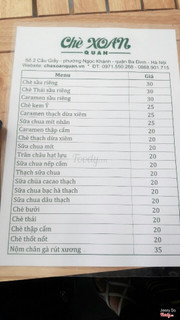 Chè XOAN
QUÁN
Số 2 Cầu Giấy - phường Ngọc Khánh - quận Ba Đình - Hà Nội
Website: chexoanquan.vn * ĐT: 0971.550.268 - 0868.901.715
Menu Giá
Chè sầu riêng 30
Chè Thái sầu riêng 30
Caramen sầu riêng 30
Chè kem Ý 25
Caramen thạch dừa xiêm 25
Sữa chua mít nhân 25
Caramen thập cẩm 20
Chè thạch dừa xiêm 20
Sữa chua mít 20
Trân châu hạt lựu 20
Sữa chua nếp cẩm 20
Thạch sữa chua 20
Sữa chúa cacao thạch 20
Sữa chua bạc hà thạch 20
Sữa chua dâu thạch 20
Chè bưởi 20
Chè thái 20
Chè thập cẩm 20
Chè thốt nốt 20
Nộm chân gà rút xương 35
Foody.vn